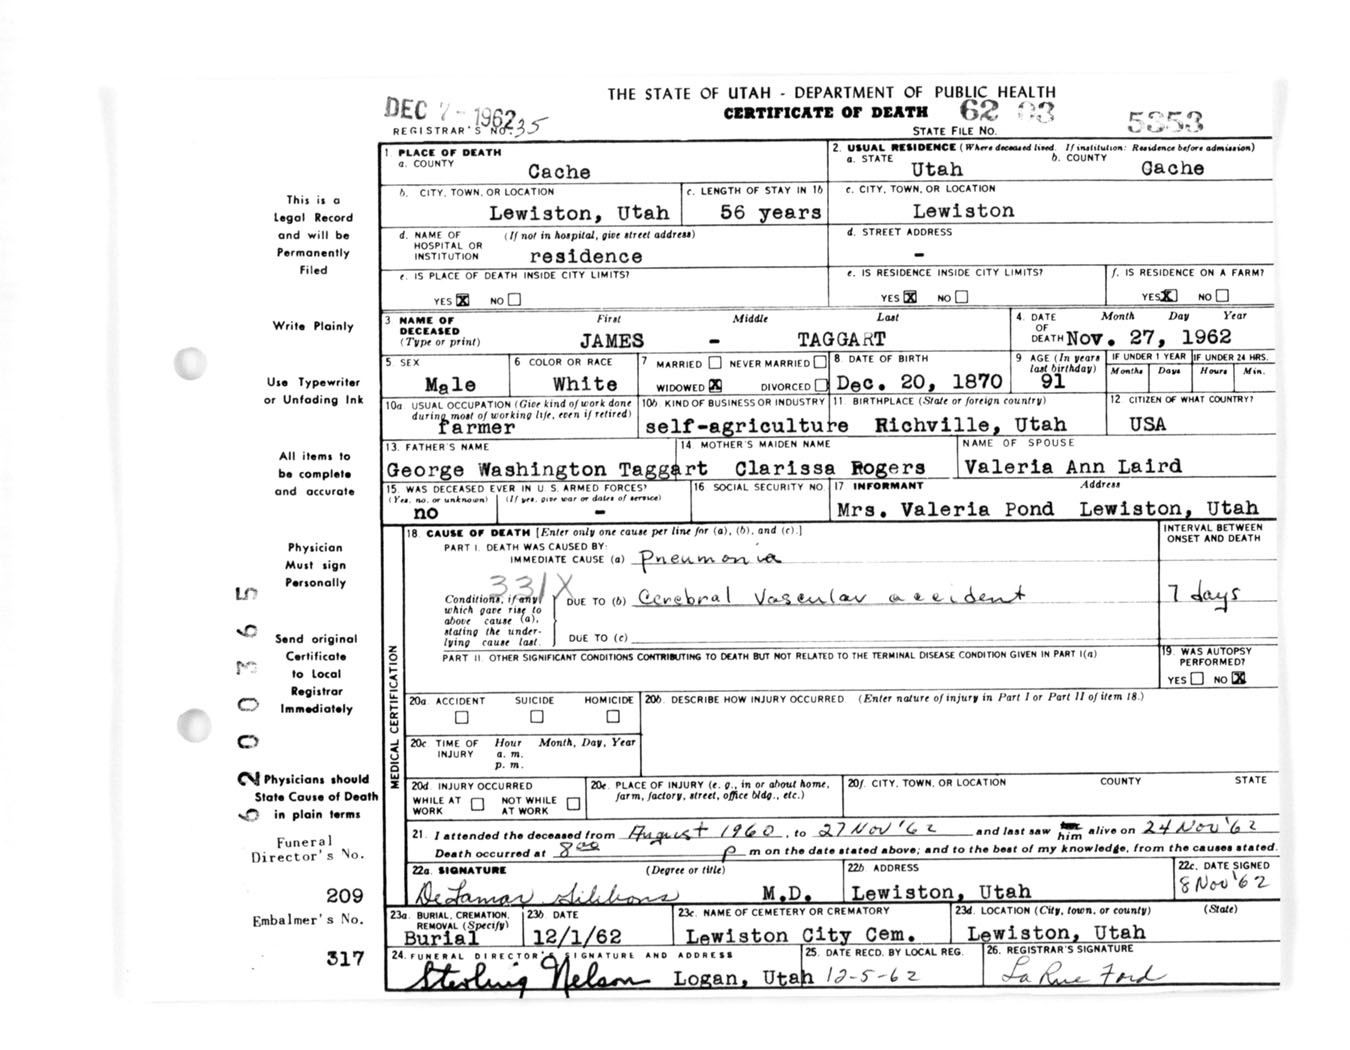 THE STATE OF UTAH - DEPARTMENT OF PUBLIC HEALTH
DEC 7 - 1962
CERTIFICATE OF DEATH 62 03 5353
REGISTRAR'S NO. 35
STATE FILE NO.
1 PLACE OF DEATH
a. COUNTY
Cache
2. USUAL RESIDENCE (Where deceased lived. If institution: Residence before admission)
a. STATE Utah b. COUNTY Cache
b. CITY, TOWN, OR LOCATION
Lewiston, Utah
c. LENGTH OF STAY IN 1b
56 years
c. CITY, TOWN, OR LOCATION
Lewiston
d. NAME OF HOSPITAL OR INSTITUTION (If not in hospital, give street address)
residence
d. STREET ADDRESS
-
e. IS PLACE OF DEATH INSIDE CITY LIMITS?
YES X NO
e. IS RESIDENCE INSIDE CITY LIMITS?
YES X NO
f. IS RESIDENCE ON A FARM?
YES X NO
3 NAME OF DECEASED (Type or print)
First Middle Last
JAMES - TAGGART
4. DATE OF DEATH Month Day Year
Nov. 27, 1962
5 SEX
Male
6 COLOR OR RACE
White
7 MARRIED NEVER MARRIED
WIDOWED X DIVORCED
8 DATE OF BIRTH
Dec. 20, 1870
9 AGE (In years last birthday)
91
IF UNDER 1 YEAR
Months Days
IF UNDER 24 HRS.
Hours Min.
10a USUAL OCCUPATION (Give kind of work done during most of working life, even if retired)
farmer
10b. KIND OF BUSINESS OR INDUSTRY
self-agriculture
11. BIRTHPLACE (State or foreign country)
Richville, Utah
12 CITIZEN OF WHAT COUNTRY?
USA
13. FATHER'S NAME
George Washington Taggart
14. MOTHER'S MAIDEN NAME
Clarissa Rogers
NAME OF SPOUSE
Valeria Ann Laird
15. WAS DECEASED EVER IN U. S. ARMED FORCES?
(Yes, no, or unknown) (If yes, give war or dates of service)
no -
16 SOCIAL SECURITY NO.
17 INFORMANT Address
Mrs. Valeria Pond Lewiston, Utah
MEDICAL CERTIFICATION
18. CAUSE OF DEATH [Enter only one cause per line for (a), (b), and (c).]
INTERVAL BETWEEN ONSET AND DEATH
PART I. DEATH WAS CAUSED BY:
IMMEDIATE CAUSE (a) Pneumonia
331X
Conditions, if any which gave rise to above cause (a), stating the under-lying cause last.
DUE TO (b) Cerebral Vascular accident 7 days
DUE TO (c)
PART II. OTHER SIGNIFICANT CONDITIONS CONTRIBUTING TO DEATH BUT NOT RELATED TO THE TERMINAL DISEASE CONDITION GIVEN IN PART I(a)
19. WAS AUTOPSY PERFORMED?
YES NO X
20a ACCIDENT SUICIDE HOMICIDE
20b. DESCRIBE HOW INJURY OCCURRED. (Enter nature of injury in Part I or Part II of item 18.)
20c TIME OF INJURY Hour Month, Day, Year
a. m.
p. m.
20d. INJURY OCCURRED
WHILE AT WORK NOT WHILE AT WORK
20e. PLACE OF INJURY (e. g., in or about home, farm, factory, street, office bldg., etc.)
20f. CITY, TOWN, OR LOCATION COUNTY STATE
21. I attended the deceased from August 1960, to 27 Nov '62 and last saw him alive on 24 Nov '62
Death occurred at 8 00 p m on the date stated above; and to the best of my knowledge, from the causes stated.
22a. SIGNATURE (Degree or title)
DeLamar Gibbons M.D.
22b ADDRESS
Lewiston, Utah
22c. DATE SIGNED
8 Nov '62
23a. BURIAL, CREMATION, REMOVAL (Specify)
Burial
23b. DATE
12/1/62
23c. NAME OF CEMETERY OR CREMATORY
Lewiston City Cem.
23d. LOCATION (City, town, or county) (State)
Lewiston, Utah
24. FUNERAL DIRECTOR'S SIGNATURE AND ADDRESS
Sterling Nelson Logan, Utah
25. DATE RECD. BY LOCAL REG.
12-5-62
26. REGISTRAR'S SIGNATURE
La Rue Ford
This is a
Legal Record
and will be
Permanently
Filed
Write Plainly
Use Typewriter
or Unfading Ink
All items to
be complete
and accurate
Physician
Must sign
Personally
Send original
Certificate
to Local
Registrar
Immediately
Physicians should
State Cause of Death
in plain terms
Funeral
Director's No.
209
Embalmer's No.
317